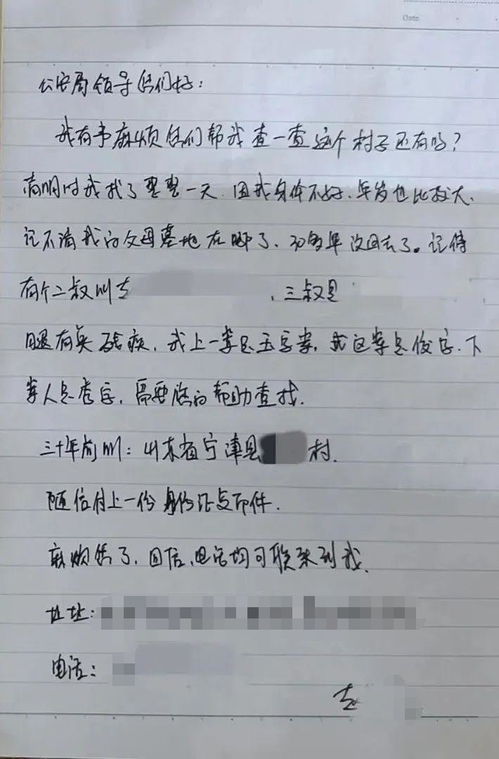 Date
公安局领导你们好:
我有事麻烦你们帮我查一查这个村子还有吗?
清明时我找了整整一天.因我身体不好.年岁也比较大.
记不清我的父母墓地在哪了.30多年没回去了。记得
有个二叔叫, 三叔是
腿有点残疾.我上一辈是玉字辈,我这辈是俊字.下
辈人是秀字,需要您的帮助查找.
三十年前叫:山东省宁津县 村.
随信付上一份身份证复印件.
麻烦您了,回信,电话均可联系到我.
地址:
电话: